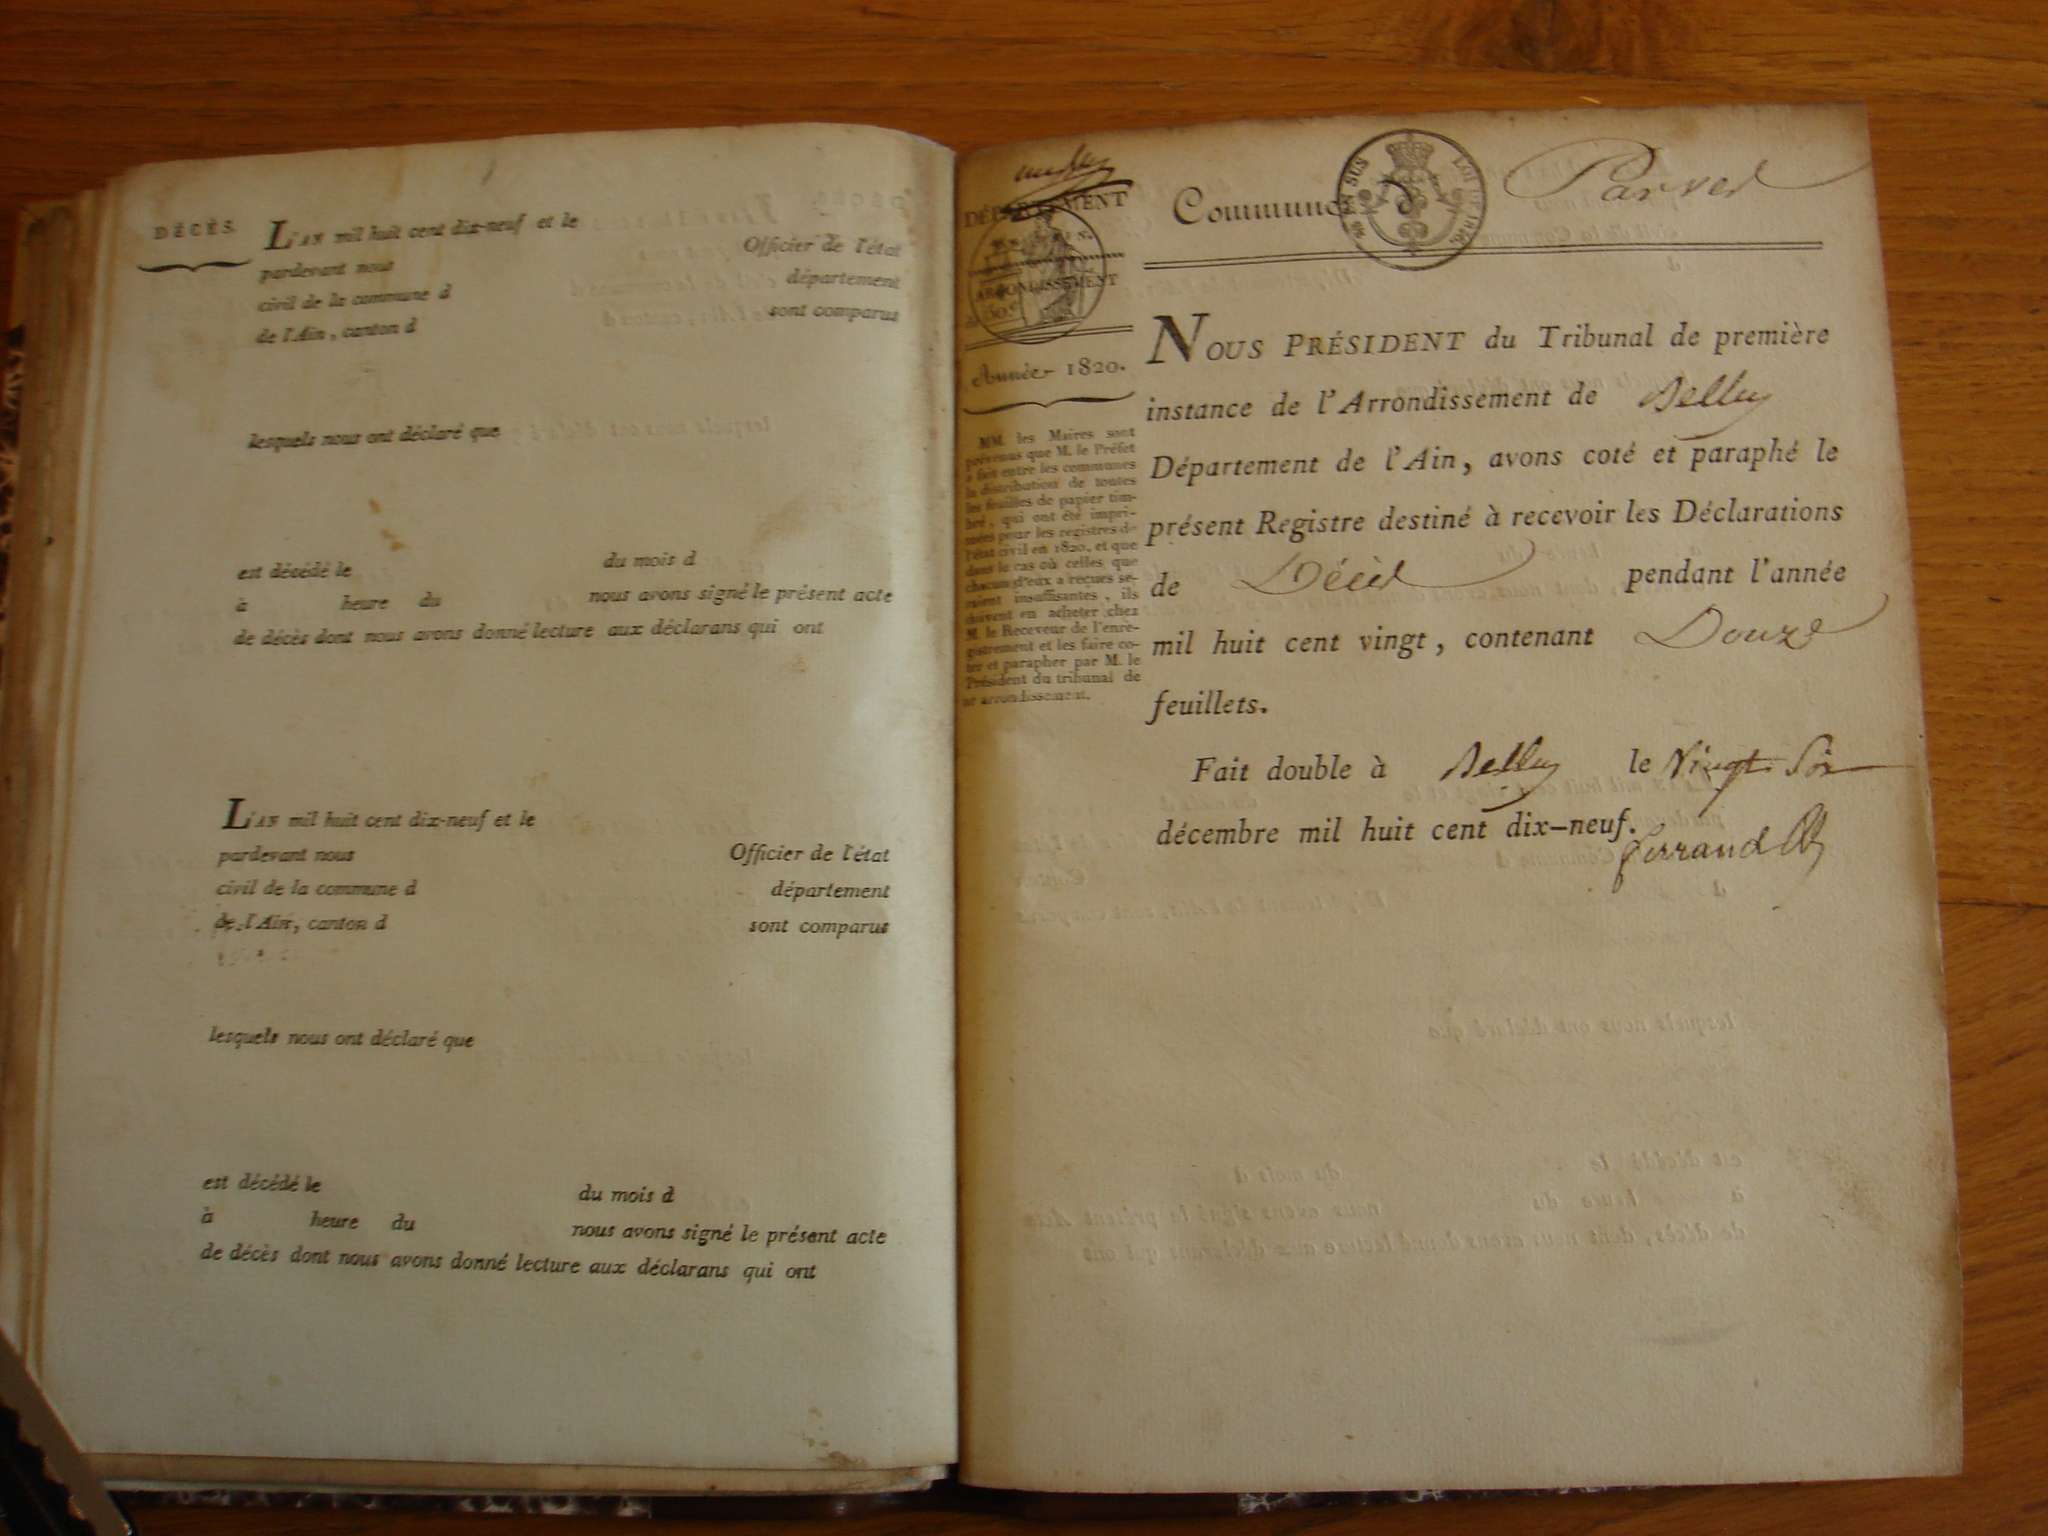 DÉCÈS.
L'AN mil huit cent dix-neuf et le
pardevant nous Officier de l'état
civil de la commune d département
de l'Ain, canton d sont comparus
lesquels nous ont déclaré que
est décédé le du mois d
à heure du nous avons signé le présent acte
de décès dont nous avons donné lecture aux déclarans qui ont
L'AN mil huit cent dix-neuf et le
pardevant nous Officier de l'état
civil de la commune d département
de l'Ain, canton d sont comparus
lesquels nous ont déclaré que
est décédé le du mois d
à heure du nous avons signé le présent acte
de décès dont nous avons donné lecture aux déclarans qui ont
DÉPARTEMENT
ARRONDISSEMENT
Année 1820.
MM. les Maires sont
prévenus que M. le Préfet
a fait entre les communes
la distribution de toutes
les feuilles de papier tim-
bré, qui ont été impri-
mées pour les registres de
l'état civil en 1820, et que
dans le cas où celles que
chacun d'eux a reçues se-
roient insuffisantes, ils
doivent en acheter chez
M. le Receveur de l'enre-
gistrement et les faire co-
ter et parapher par M. le
Président du tribunal de
arrondissement.
Commune d Parves
NOUS PRÉSIDENT du Tribunal de première
instance de l'Arrondissement de Belley
Département de l'Ain, avons coté et paraphé le
présent Registre destiné à recevoir les Déclarations
de Décès pendant l'année
mil huit cent vingt, contenant Douze
feuillets.
Fait double à Belley le Vingt Six
décembre mil huit cent dix-neuf.
Ferrand